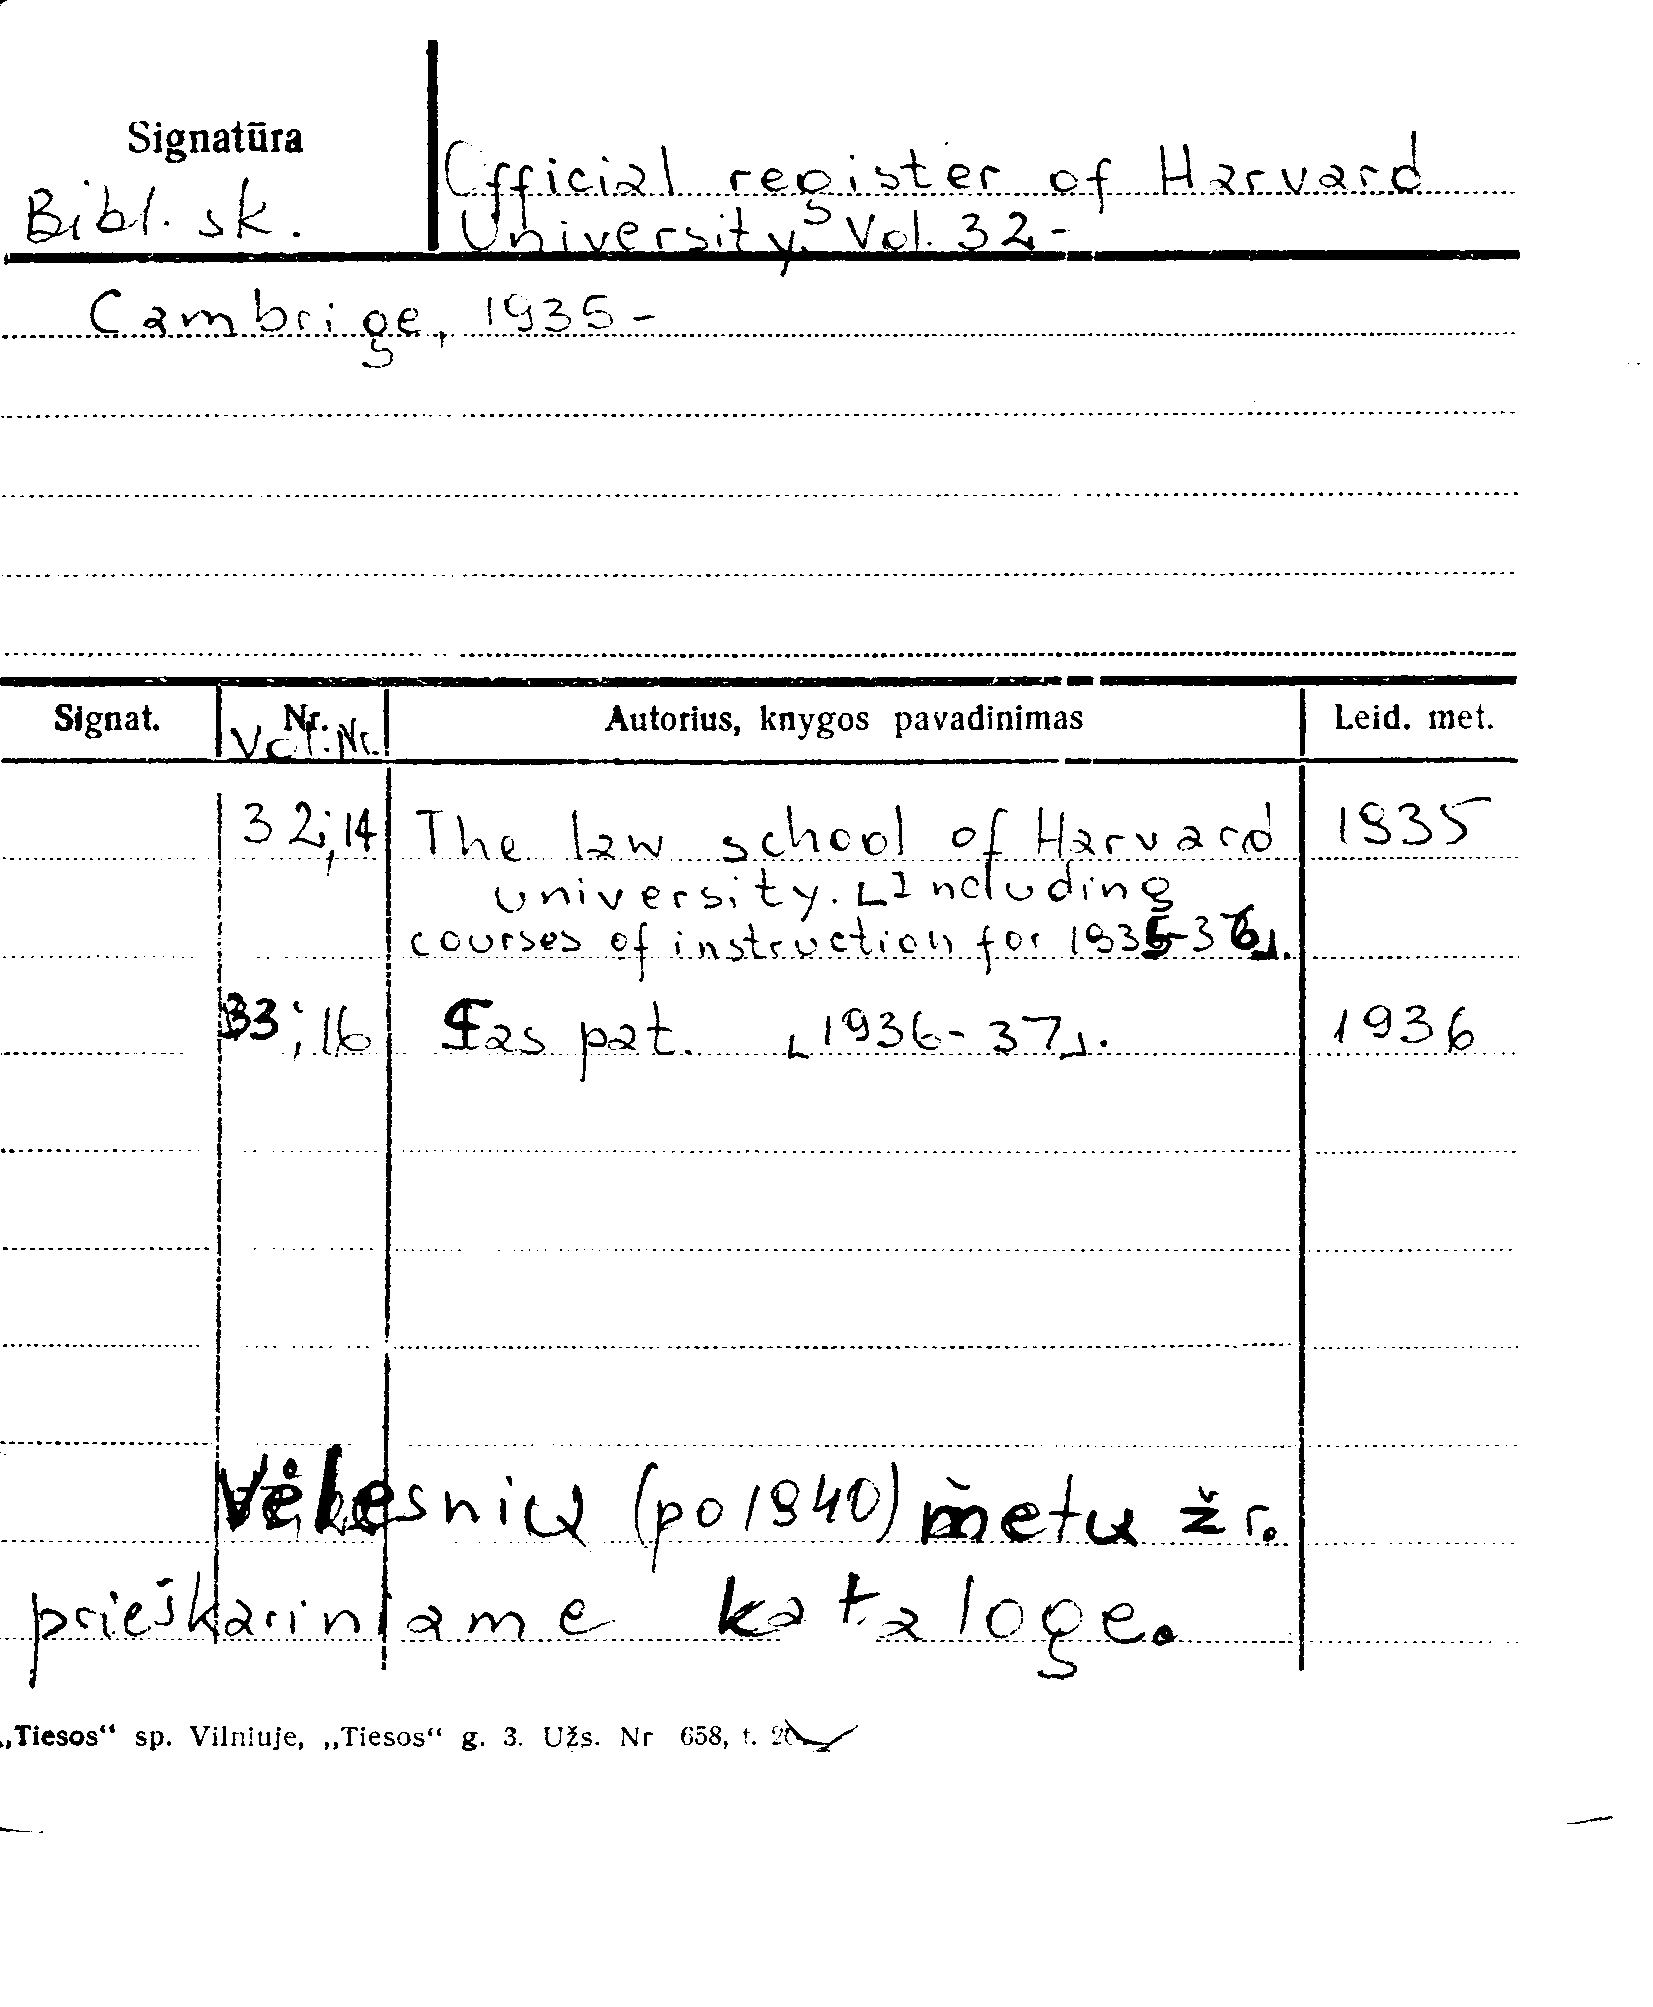 Signatūra
Bibl. sk.
Official register of Harvard
University. Vol. 32-
Cambrige, 1935-
Signat. Nr. Autorius, knygos pavadinimas Leid. met.
Vol. Nr.
32; 14 The law school of Harvard 1935
university. [Including
courses of instruction for 1935-36].
33; 16 Tas pat. [1936-37]. 1936
Vėlesnių (po 1940) metų žr.
prieškariniame kataloge.
„Tiesos“ sp. Vilniuje, „Tiesos“ g. 3. Užs. Nr 658, t.